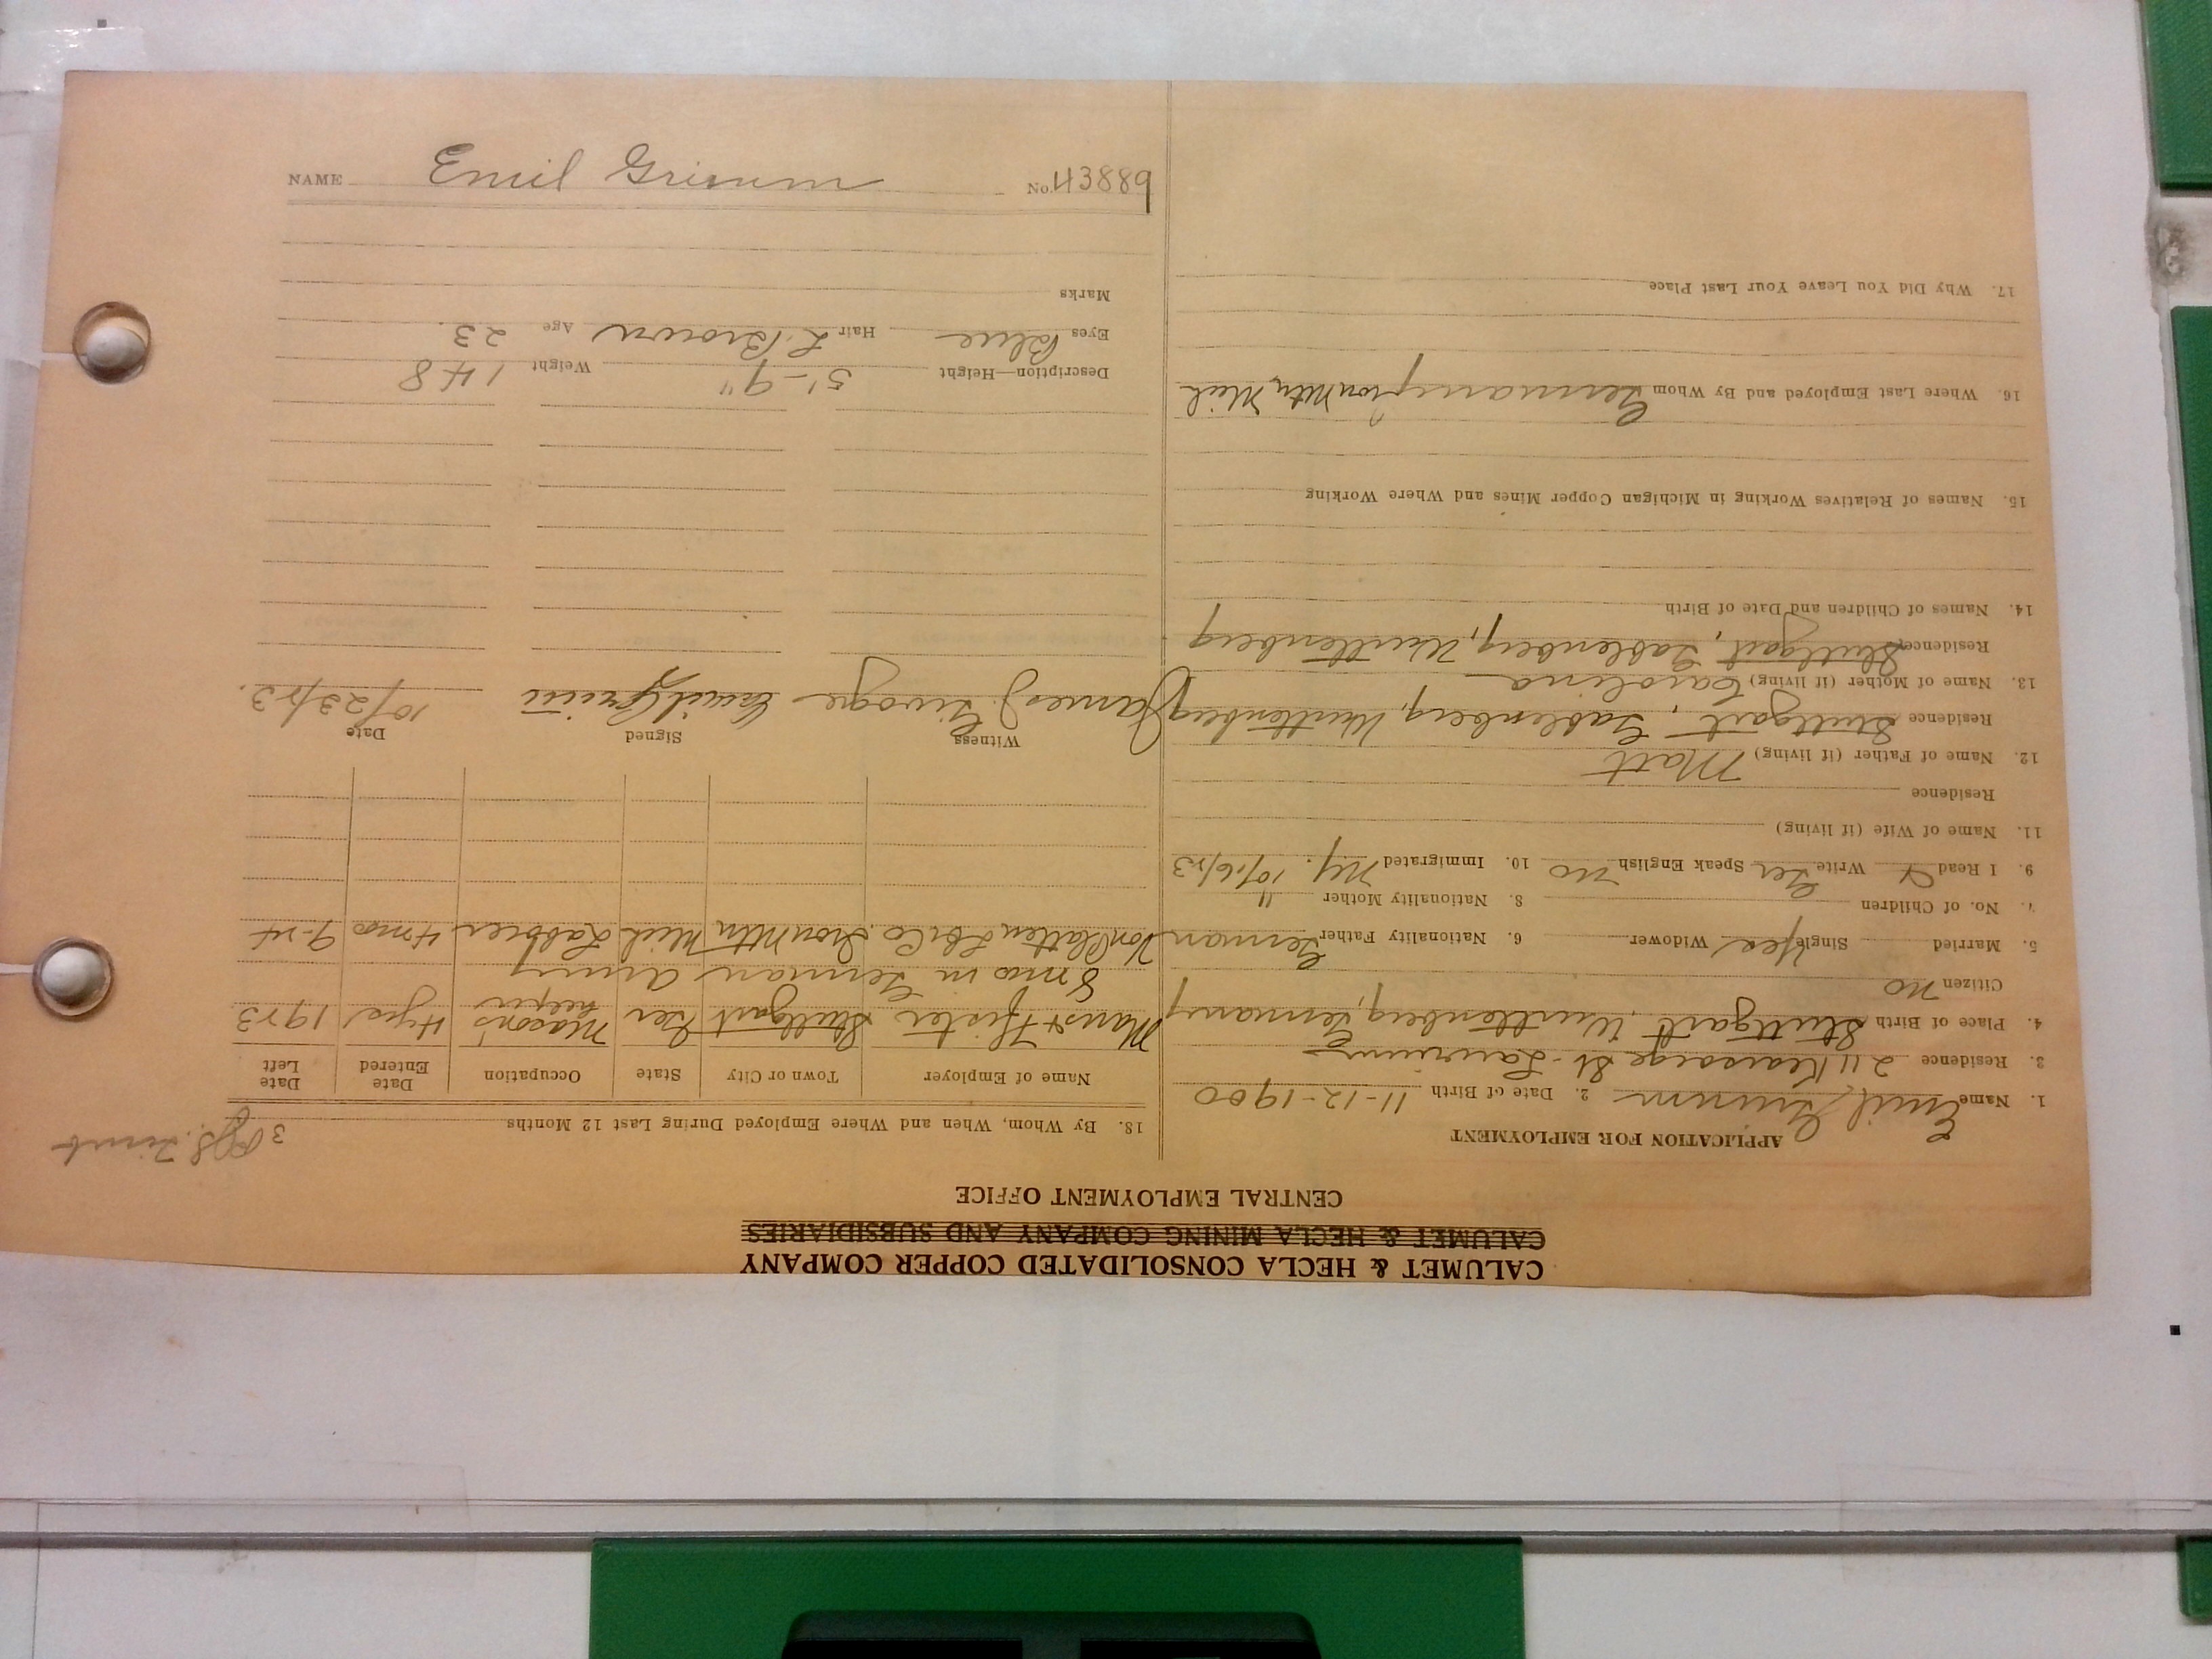 CALUMET & HECLA CONSOLIDATED COPPER COMPANY
CALUMET & HECLA MINING COMPANY AND SUBSIDIARIES
CENTRAL EMPLOYMENT OFFICE
APPLICATION FOR EMPLOYMENT
1. Name Emil Grimm 2. Date of Birth 11-12-1900
3. Residence 211 Kearsarge St - Laurium
4. Place of Birth Stuttgart, Wurttenberg, Germany
Citizen no
5. Married Single Yes Widower 6. Nationality Father German
7. No. of Children 8. Nationality Mother "
9. I Read Write Ger Speak English no 10. Immigrated NY. 10/16/23
11. Name of Wife (if living)
Residence
12. Name of Father (if living) Matt
Residence Stuttgart, Gablenberg, Wurttenberg
13. Name of Mother (if living) Carolina
Residence Stuttgart, Gablenberg, Wurttenberg
14. Names of Children and Date of Birth
15. Names of Relatives Working in Michigan Copper Mines and Where Working
16. Where Last Employed and By Whom Germany Iron Mtn, Mich
17. Why Did You Leave Your Last Place
18. By Whom, When and Where Employed During Last 12 Months
Name of Employer Town or City State Occupation Date Entered Date Left
Pfister Stuttgart Ger Mason's helper 4 yrs 1923
8 mos in German Army
Von Platten Iron Mtn Mich Labbrer 4 mos 9-24
Witness Signed Date
James J. Emil Grimm 10/23/23.
Description—Height 5'-9" Weight 148
Eyes Blue Hair L. Brown Age 23.
Marks
NAME Emil Grimm No. 43889